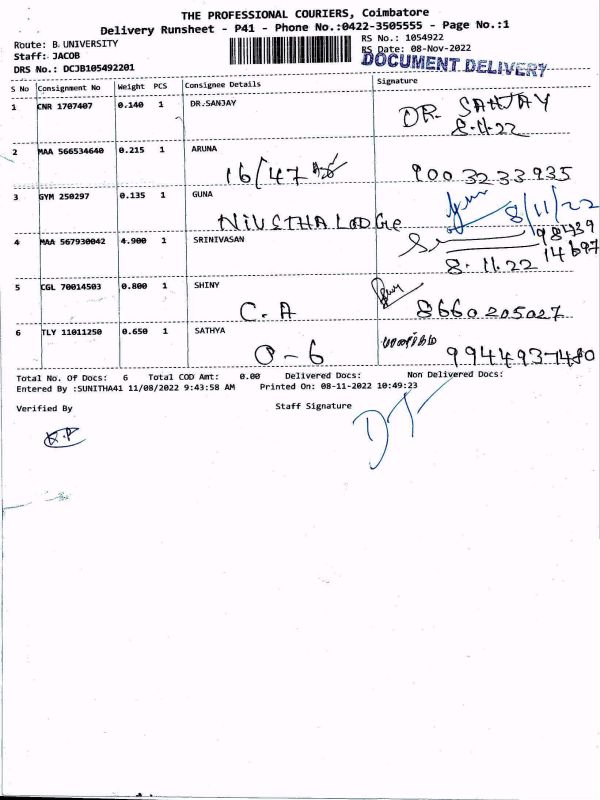 THE PROFESSIONAL COURIERS, Coimbatore
Delivery Runsheet - P41 - Phone No.:0422-3505555 - Page No.:1
Route: B UNIVERSITY
RS No.: 1054922
Staff: JACOB
RS Date: 08-Nov-2022
DOCUMENT DELIVERY
DRS No.: DCJB105492201
S No Consignment No Weight PCS Consignee Details Signature
1 CNR 1707407 0.140 1 DR.SANJAY
DR. SANJAY
8.11.22
2 MAA 566534640 0.215 1 ARUNA
16/47
900 3233935
3 GYM 250297 0.135 1 GUNA
8/11/22
NiVETHA LODGe
98439
4 MAA 567930042 4.900 1 SRINIVASAN
14697
8.11.22
5 CGL 70014503 0.800 1 SHINY
C.A
8660205027
6 TLY 11011250 0.650 1 SATHYA
O-6
9944937480
Total No. Of Docs: 6 Total COD Amt: 0.00 Delivered Docs: Non Delivered Docs:
Entered By :SUNITHA41 11/08/2022 9:43:58 AM Printed On: 08-11-2022 10:49:23
Verified By Staff Signature
K.P